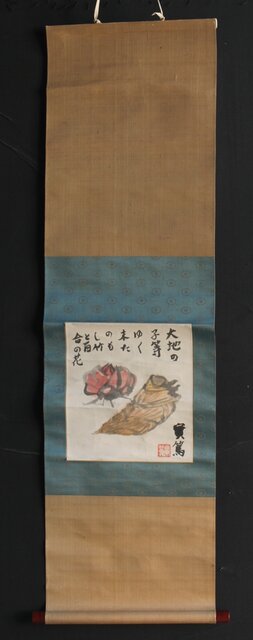 大地の
子等
ゆく
来た
のも
し竹
と百
合の花
實篤